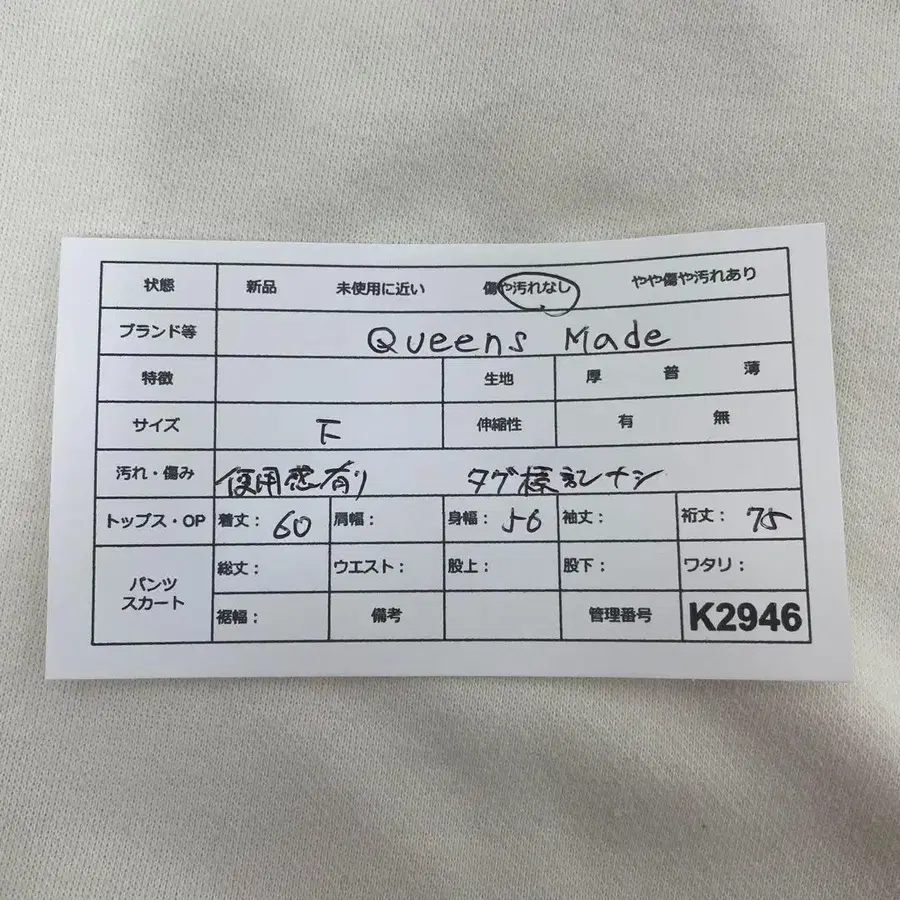 状態 新品 未使用に近い 傷や汚れなし やや傷や汚れあり
ブランド等 Queens Made
特徴 生地 厚 普 薄
サイズ 下 伸縮性 有 無
汚れ・傷み 使用感有り タグ標記ナシ
トップス・OP 着丈: 60 肩幅: 身幅: 56 袖丈: 裄丈: 75
パンツ
スカート
総丈: ウエスト: 股上: 股下: ワタリ:
裾幅: 備考 管理番号 K2946